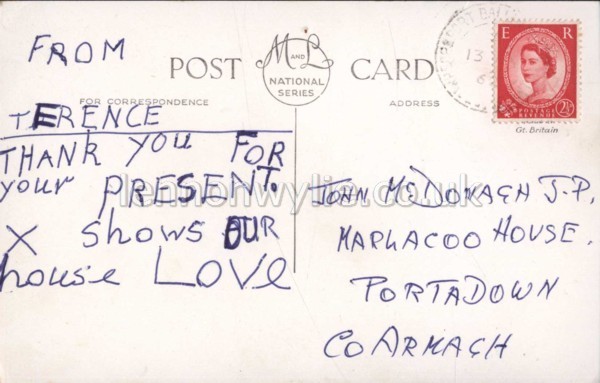 FROM
TERENCE
THANK YOU FOR
your PRESENT.
X shows OUR
house LOVE
M AND L
NATIONAL
SERIES
POST CARD
FOR CORRESPONDENCE
ADDRESS
E R
POSTAGE
REVENUE
2½D
Gt. Britain
13
JOHN McDONAGH J.P.
MAPHACOO HOUSE.
PORTADOWN
CO ARMAGH.
lennonwylie.co.uk